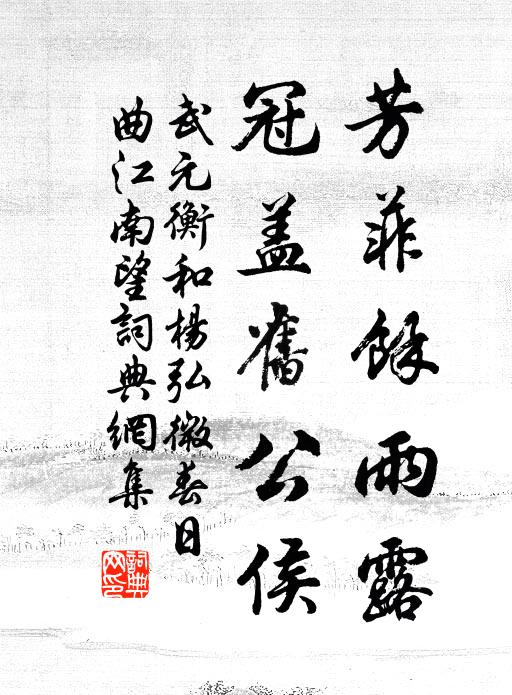 芳菲餘雨露
冠盖舊公侯
武元衡和楊弘微春日
曲江南望詞典網集
詞典
网印